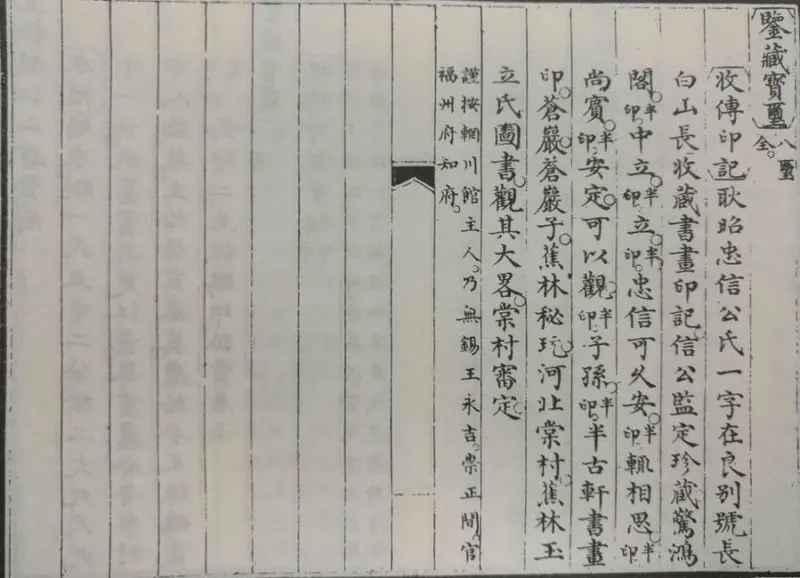 鑒藏寶璽 八璽全。
收傳印記 耿昭忠信公氏一字在良別號長
白山長收藏書畫印記。信公監定珍藏。驚鴻
閣。半印。中立。半印。立。半印。忠信可久安。半印。輒相思。半印。
尚賓。半印。安定。可以觀。半印。子孫。半印。半古軒書畫
印。蒼巖。蒼巖子。蕉林秘玩。河北棠村。蕉林玉
立氏圖書。觀其大畧。棠村審定。
謹按輞川館主人。乃無錫王永吉。崇正間。官
福州府知府。